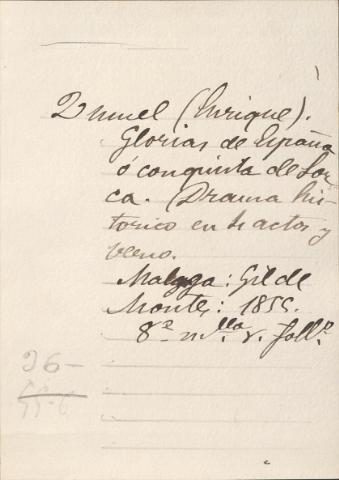 Zumel (Enrique).
Glorias de España
ó conquista de Lor
ca. (Drama his-
torico en 4 actos y
verso.
Malaga: Gil de
Montes: 1855.
8º mlla r. follº
26-